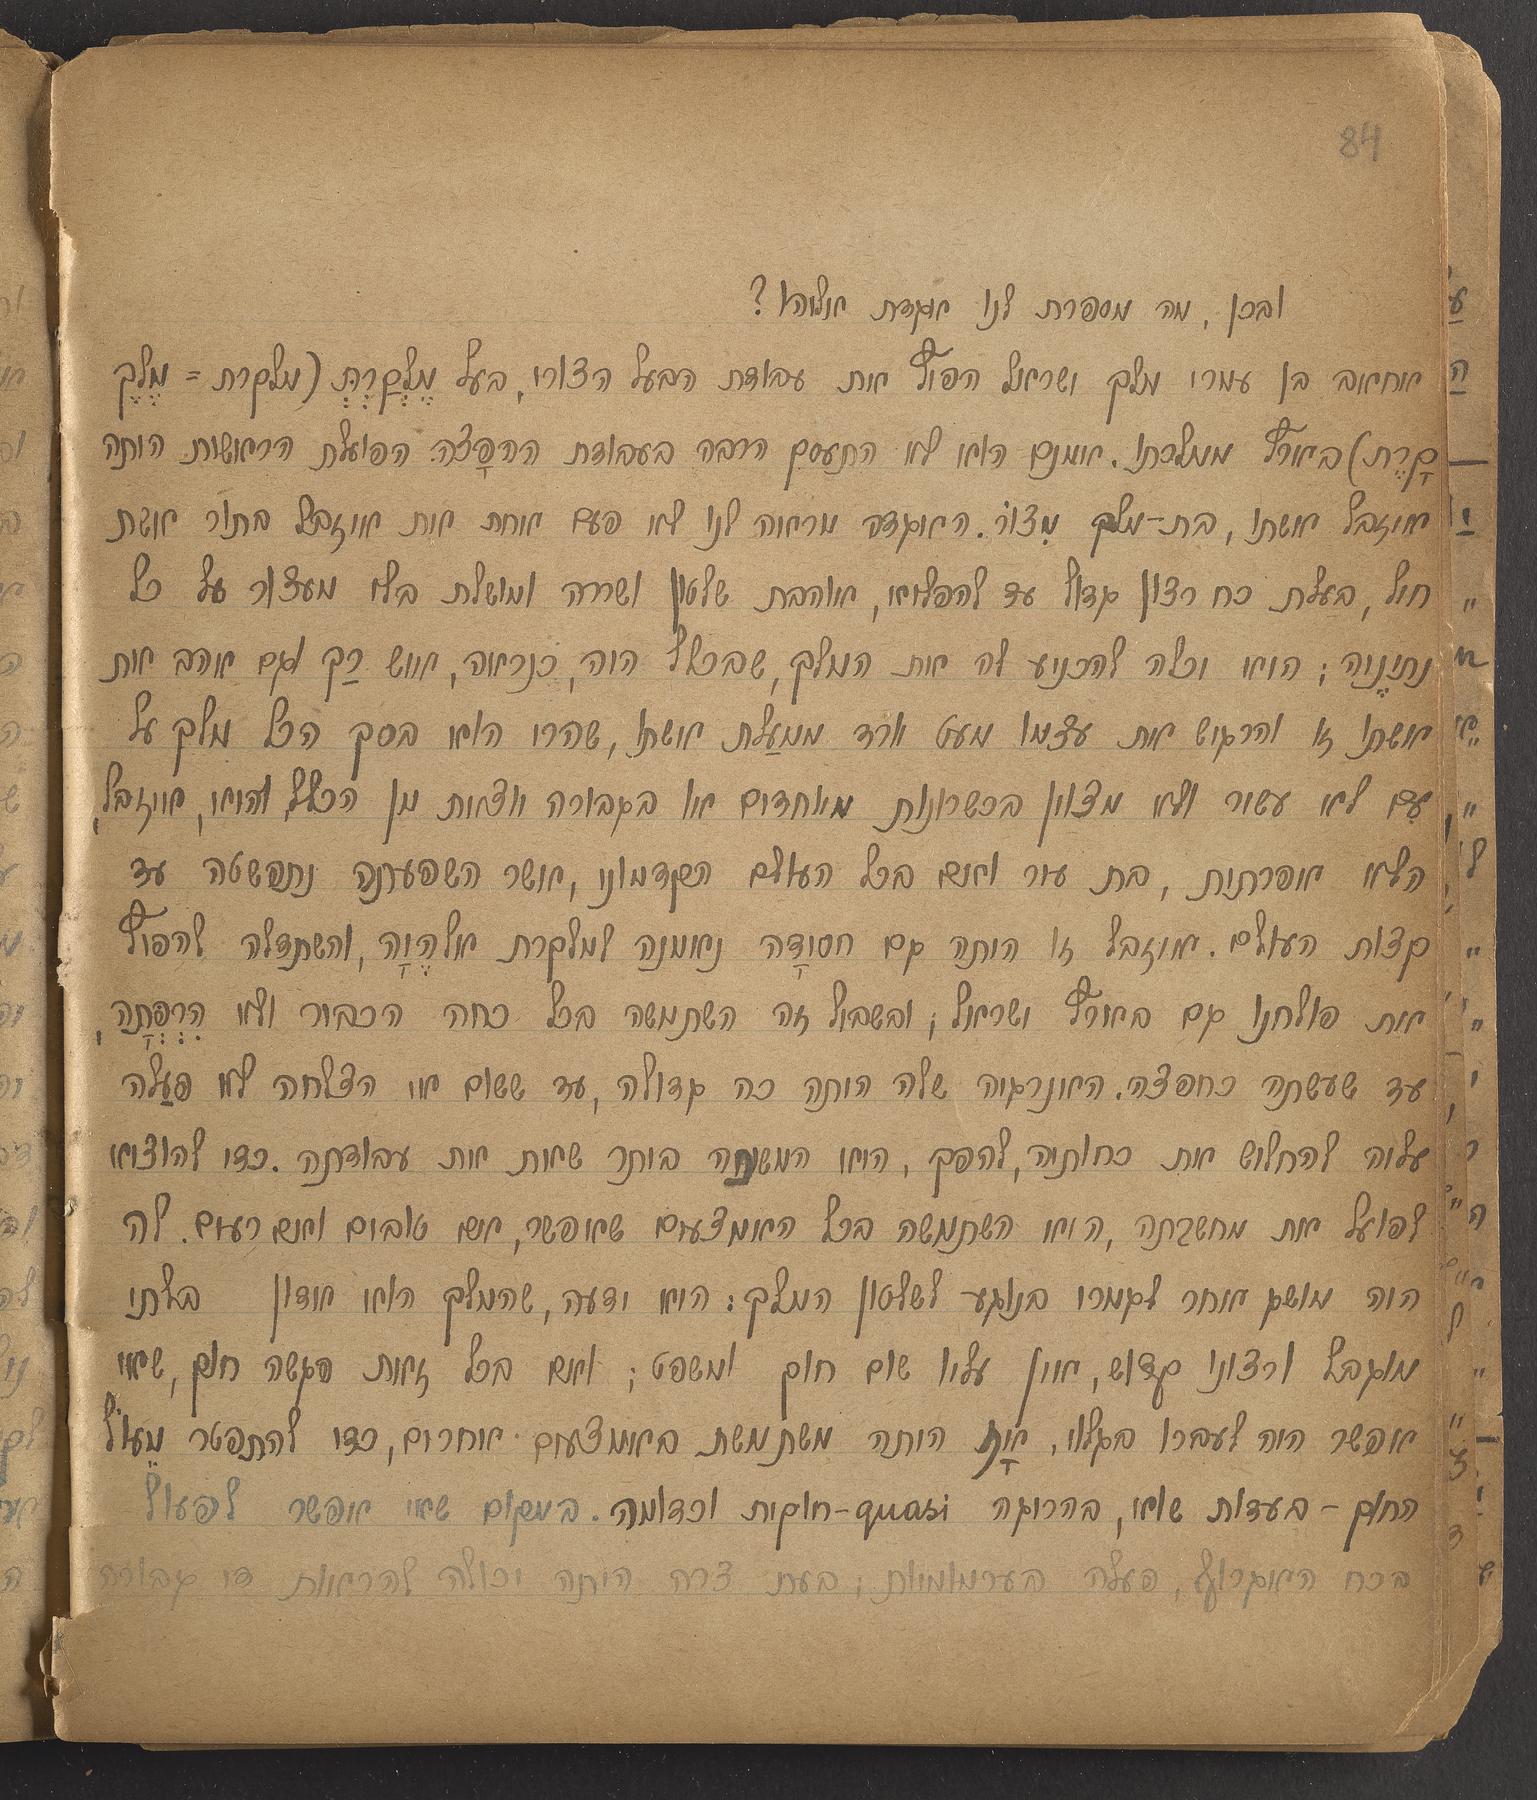 84
ובכן, מה מספרת לנו אגדת אליהו?
אחאב בן עמרי מלך ישראל הפיץ את עבודת הבעל הצורי, בעל מֶלְקַרְתְּ (מלקרת = מֶלֶךְ
קָרֶת) בארץ ממלכתו. אומנם הוא לא התעסק הרבה בעבודת ההפָצה. הפועלת הראשית היתה
איזבל אשתו, בת-מלך מִצוֹר. האגדה מראה לנו לא פעם אחת את איזבל בתור אשת
חיל, בעלת כח רצון גדול עד להפליא, אוהבת שלטון ושררה ומושלת בלי מעצור על כל
נתינֶיה; היא יכלה להכניע לה את המלך, שבכלל היה, כנראה, איש רַך וגם אהב את
אשתו זו והרגיש את עצמו מעט ירד ממַעלת אשתו, שהרי הוא בסך הכל מלך על
עַם לא עשיר ולא מצוין בכשרונות מאחדים או בגבורה יוצאת מן הכלל והיא, איזבל,
הלא אפרתית, בת עיר ואם בכל העולם הקדמוני, אשר השפעתה נתפשטה עד
קצות העולם. איזבל זו היתה גם חסידָה נאמנה למלקרת אלהֶיהָ, והשתדלה להפיץ
את פולחנו גם בארץ ישראל; ובשביל זה השתמשה בכל כחה הכביר ולא הִרְפְּתָה,
עד שעשתה כחפצה. האנרגיה שלה היתה כה גדולה, עד ששום אי הצלחה לא פעַלה
עליה להחליש את כחותיה, להפך, היא המשיכה ביתר שאת את עבודתה. כדי להוציא
לפועל את מחשבתה, היא השתמשה בכל האמצעים שאפשר, אם טובים ואם רעים. לה
היה מושג אחר לגמרי בנוגע לשלטון המלך: היא ידעה, שהמלך הוא אדון בלתי
מוגבל ורצונו קדוש, אין עליו שום חוק ומשפט; ואם בכל זאת פגשה חוק, שאי
אפשר היה לעברו בגלוי, אָז היתה משתמשת באמצעים אחרים, כדי להתפטר מֵעוֹל
החוק – בעדות שוא, בהריגה quasi-חוקית וכדומה. במקום שאי אפשר לפעול
בכח האגרוף, פעלה בערמומיות; בעת צרה היתה יכולה להראות די גבורה